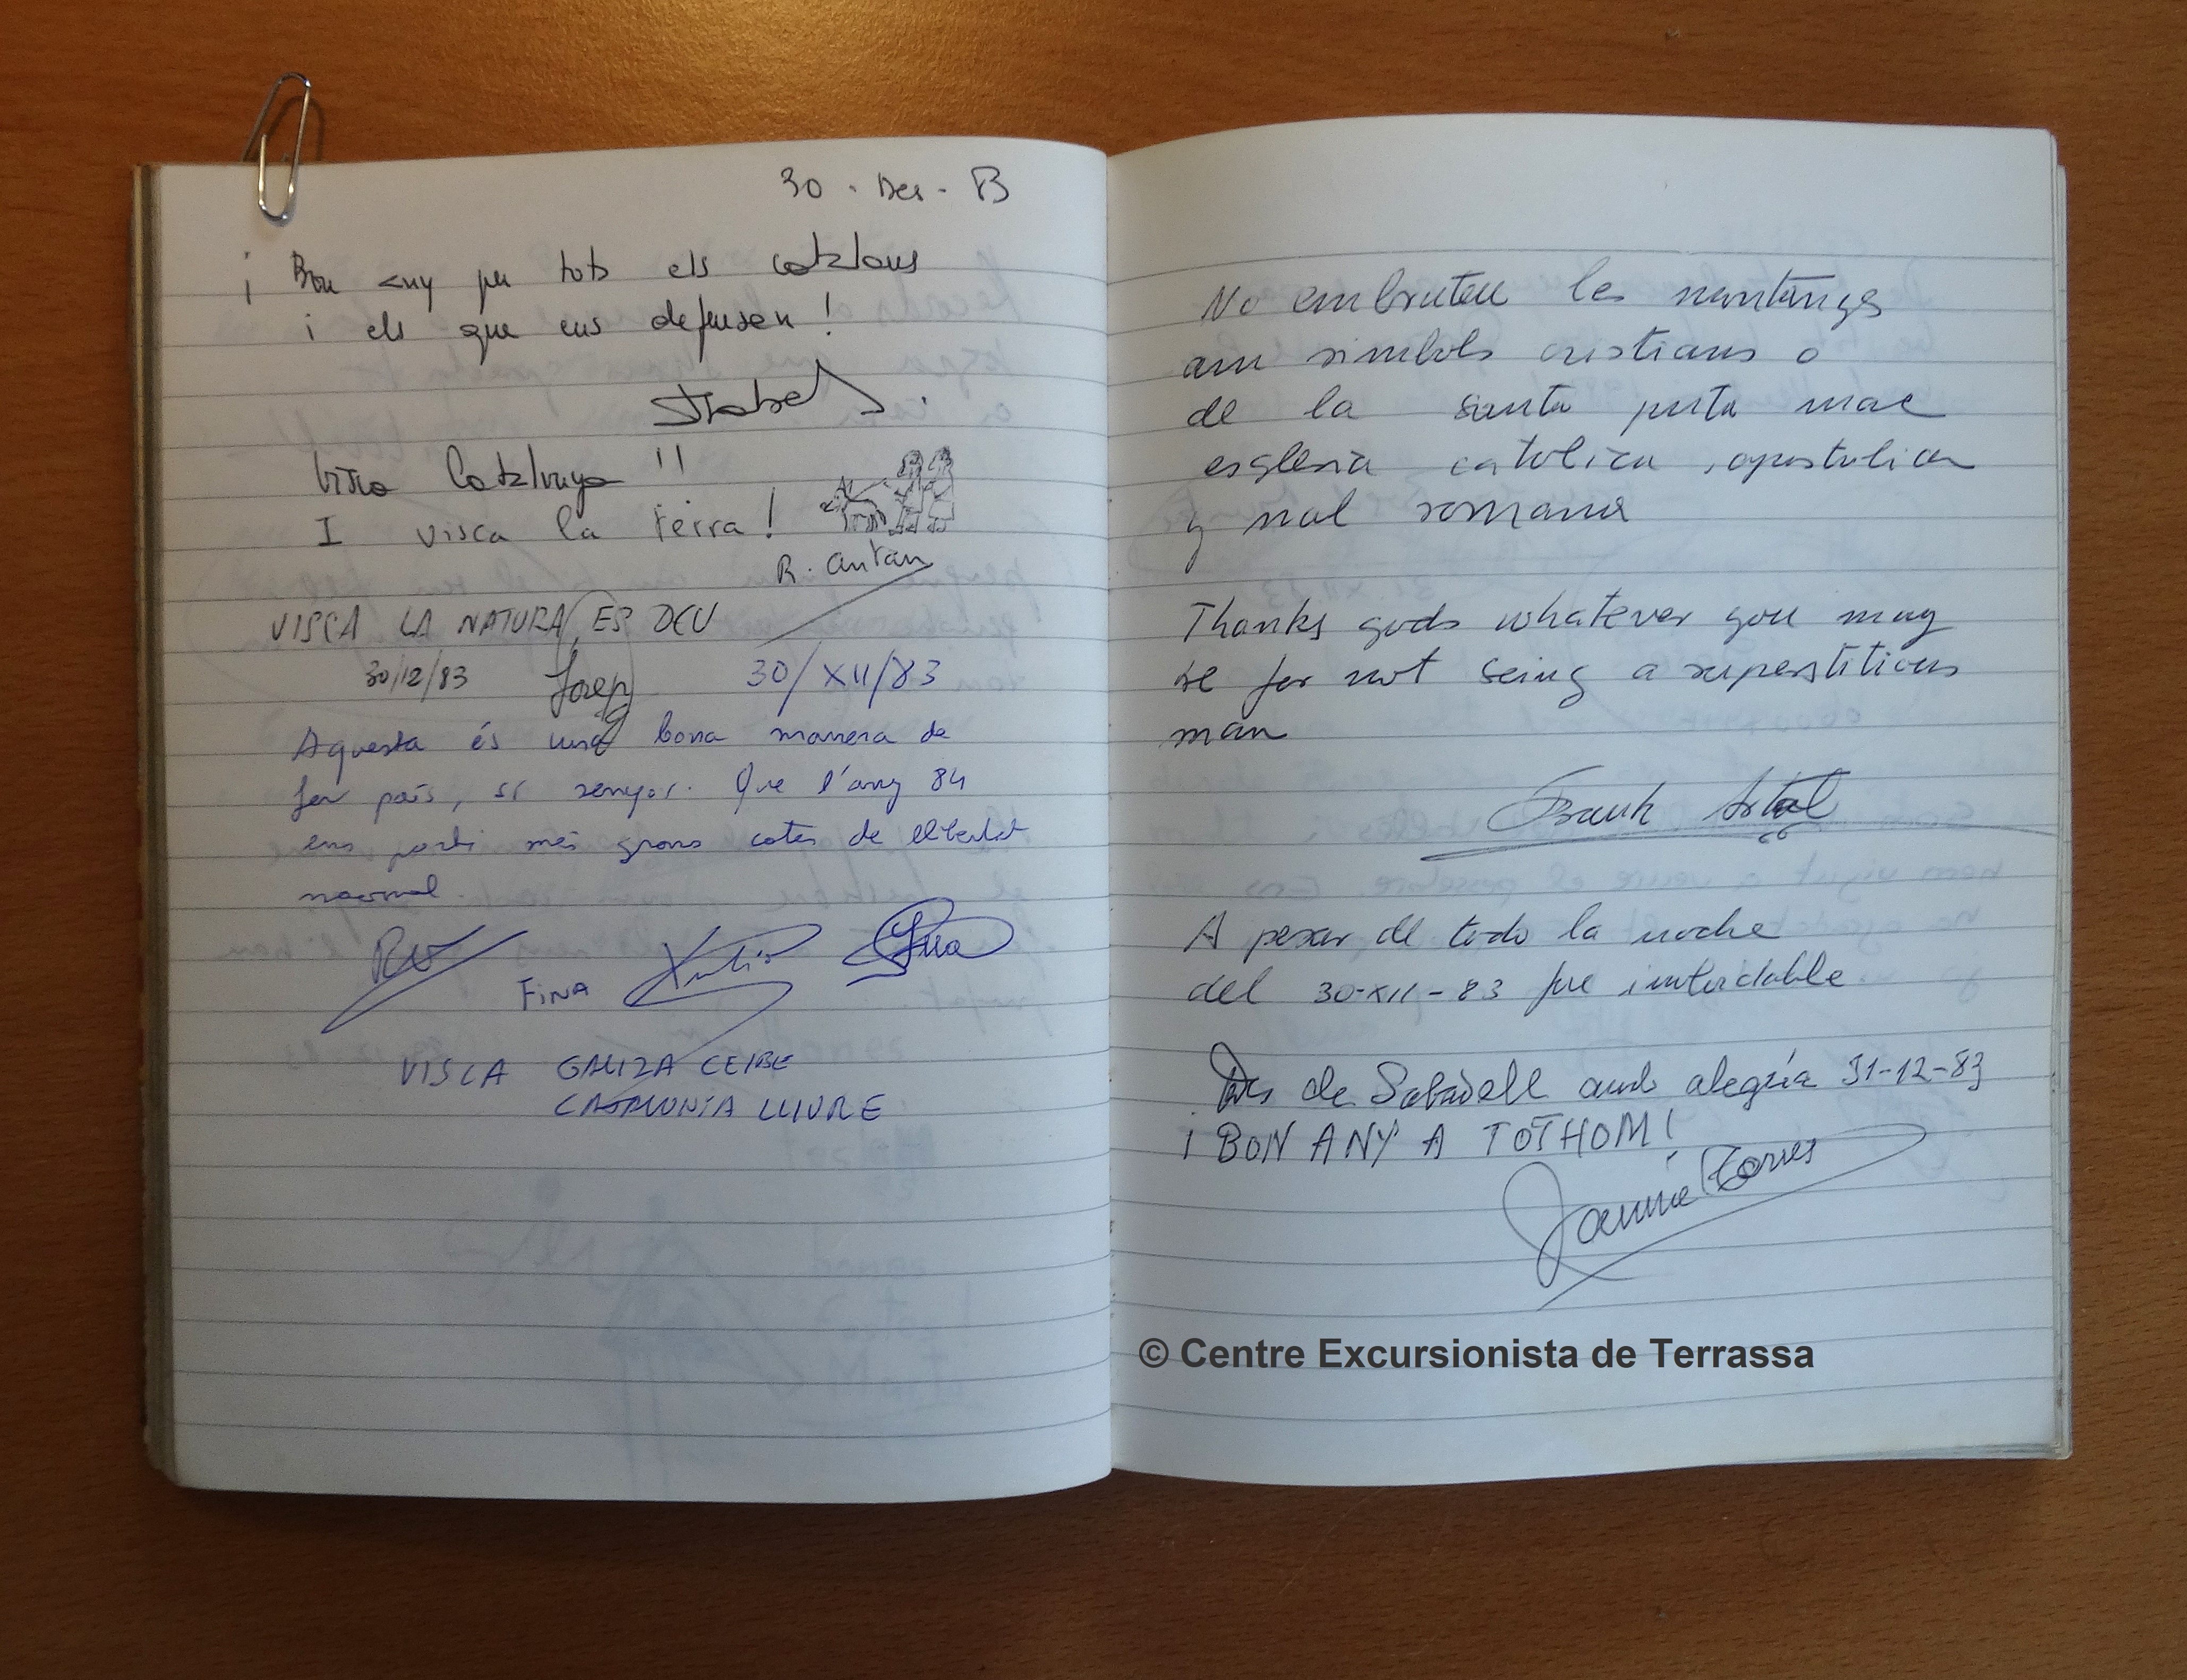 30 - Des - 83
¡ Bon any per tots els catalans
i els que ens defensen !
Isabel
Visca Catalunya !!
I visca la terra !
R. antan
VISCA LA NATURA, ES DEU
30/12/83 Josep 30/XII/83
Aquesta és una bona manera de
fer país, sí senyor. Que l'any 84
ens porti més grans cotes de llibertat
nacional.
FINA
VISCA GALIZA CEIBE
CATALONIA LLIURE
No embruteu les muntanyes
am simbols cristians o
de la santa puta mare
esglesia catolica, apostolica
y mal romana
Thanks gods whatever you may
be for not being a superstitious
man
Frank Artal
A pesar de todo la noche
del 30-XII-83 fue inolvidable
Des de Sabadell amb alegría 31-12-83
¡ BON ANY A TOTHOM !
Jaume Torres
© Centre Excursionista de Terrassa